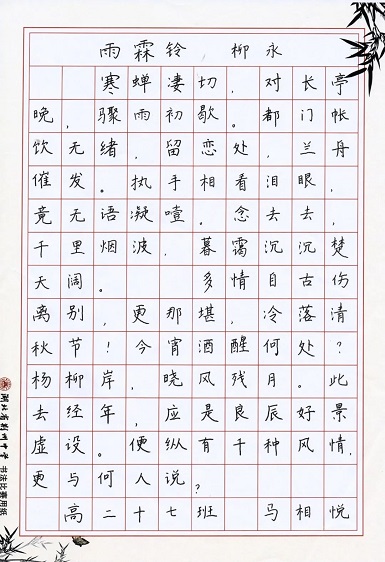 雨霖铃 柳永
寒蝉凄切,对长亭
晚,骤雨初歇。都门帐
饮无绪,留恋处,兰丹
催发。执手相看泪眼,
竟无语凝噎。念去去,
千里烟波,暮霭沉沉楚
天阔。 多情自古伤
离别,更那堪,冷落清
秋节!今宵酒醒何处?
杨柳岸,晓风残月。此
去经年,应是良辰好景
虚设。便纵有千种风情,
更与何人说?
高二十七班 马相悦
湖北省荆州中学 书法比赛用纸